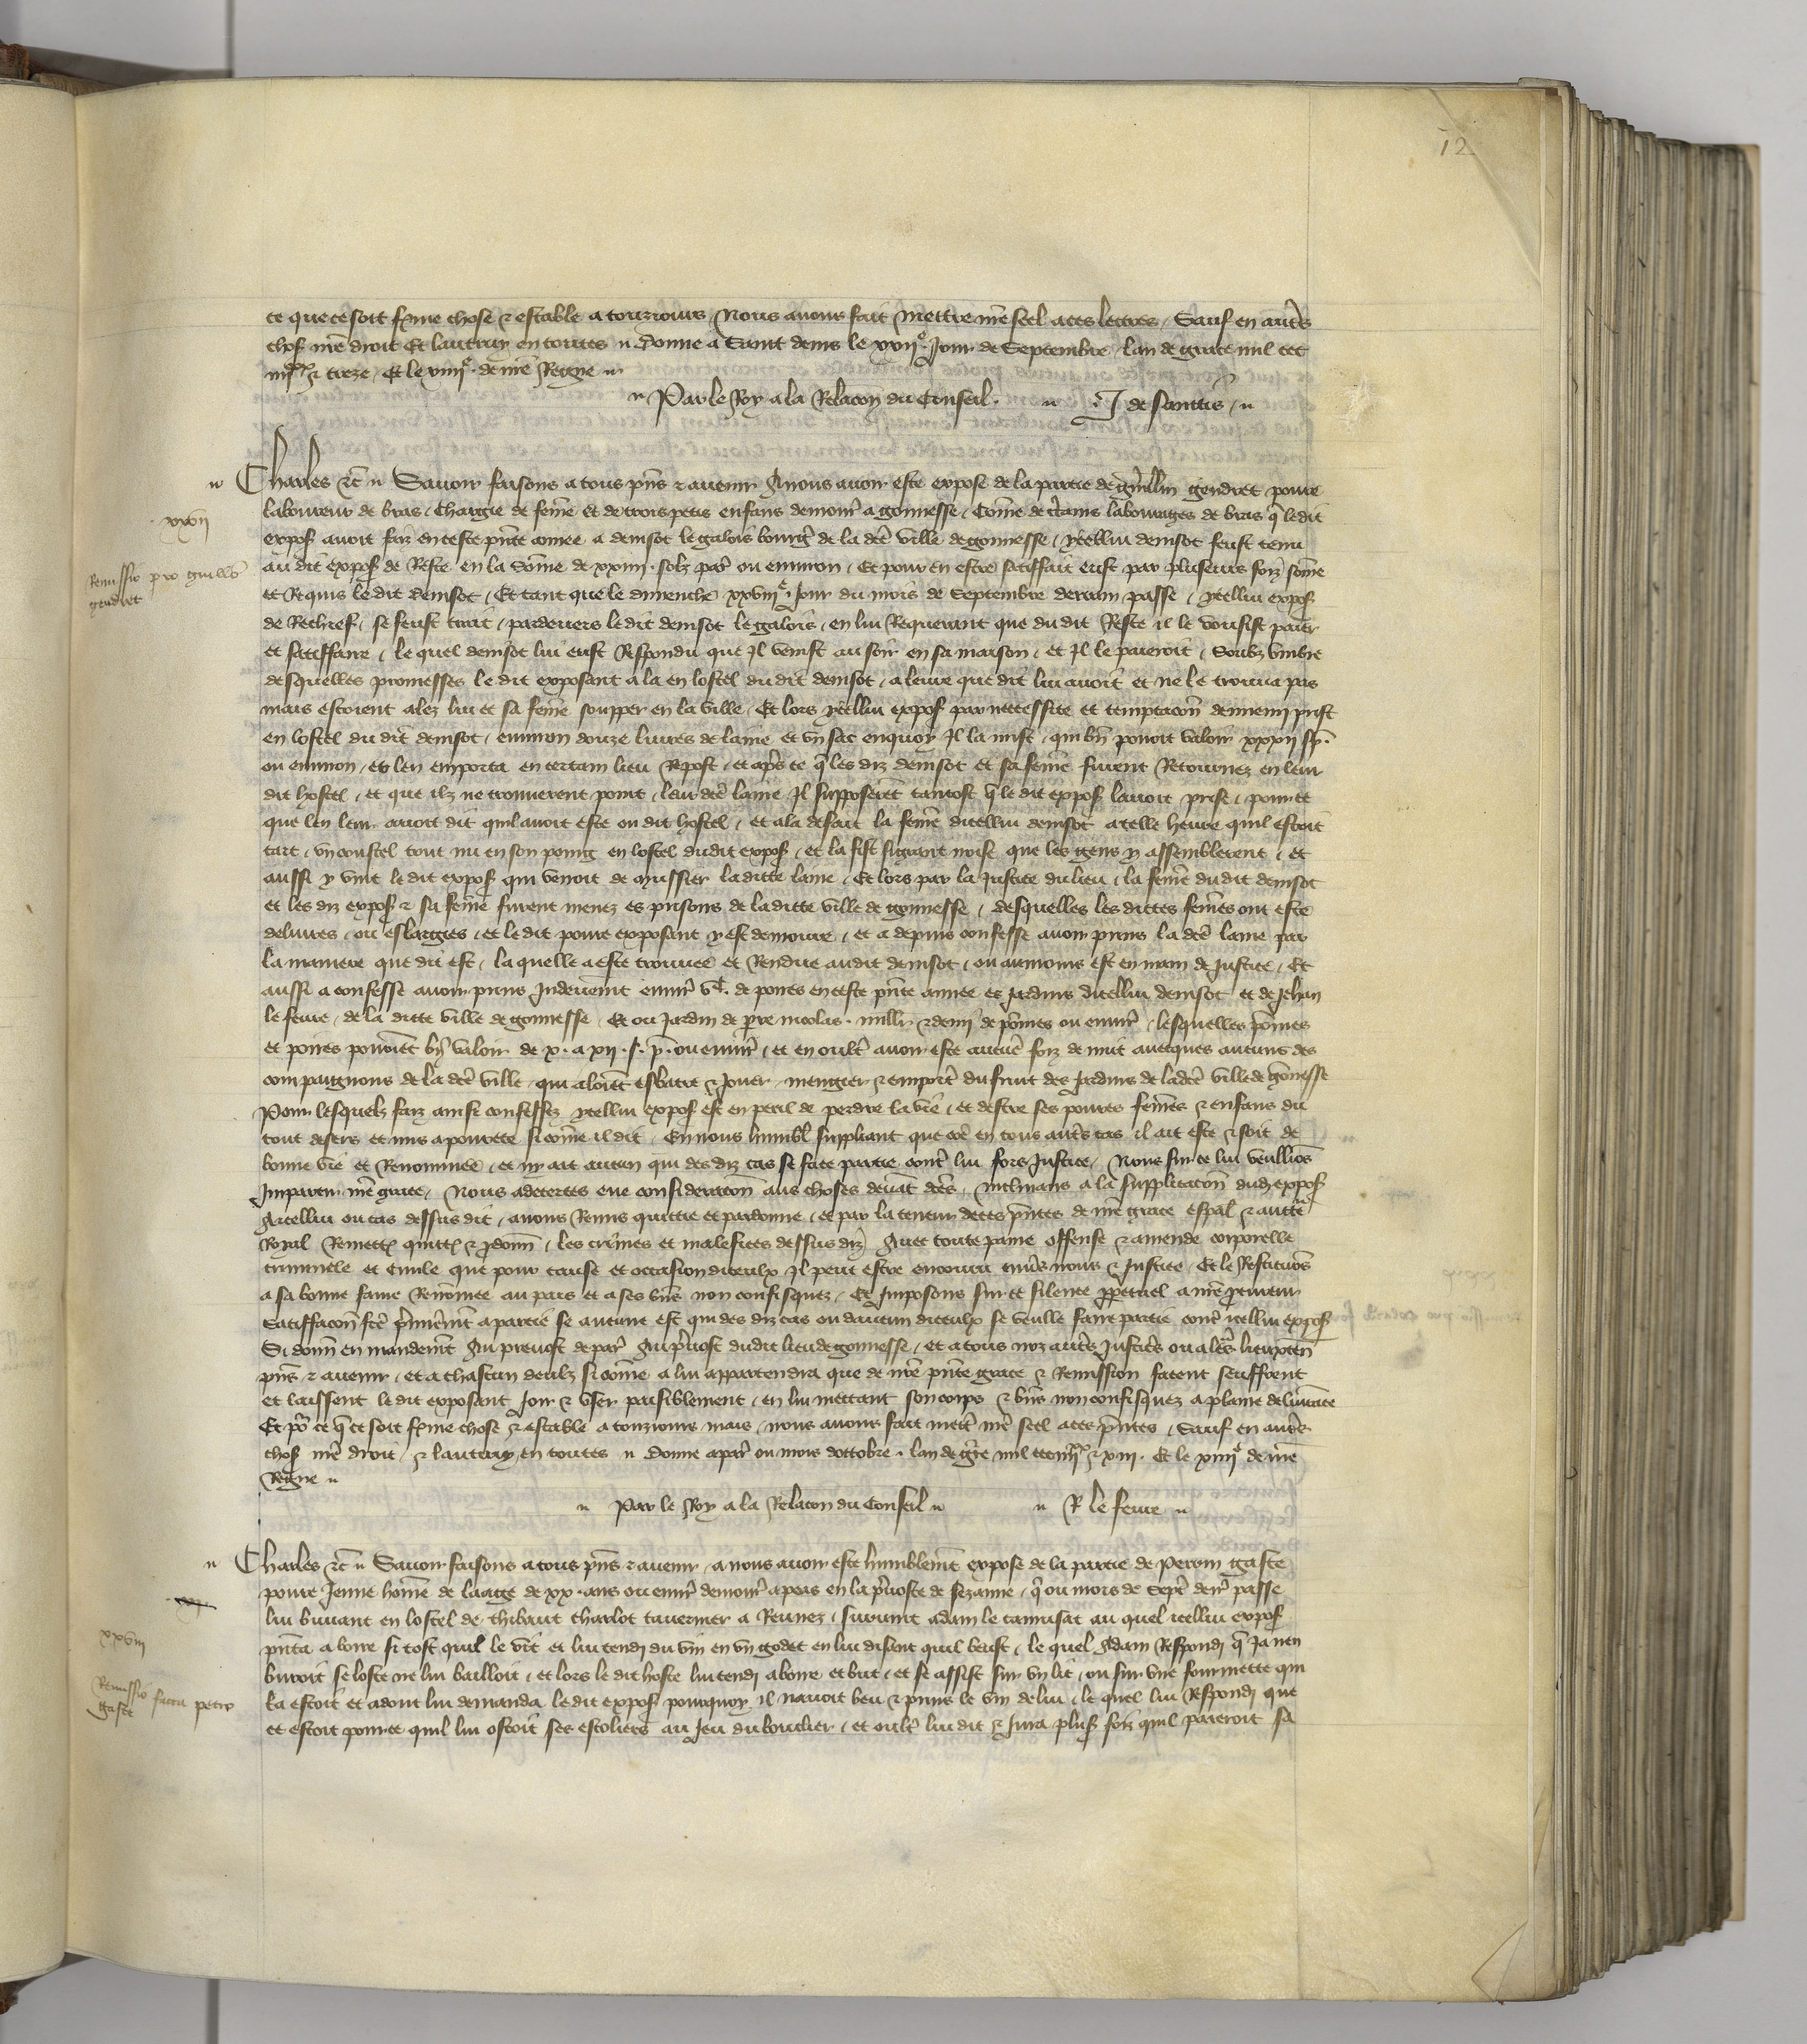 12
ce que ce soit ferme chose & estable a touzjours Nous avons fait mettre nre seel a ces lettres Sauf en autres
choses nre droit Et lautruy en toutes Donne a Saint denis le xxii e Jour de Septembre lan de grace mil ccc
iiii xx & treze Et le xiiii e de nre Regne
Par le Roy a la Relacon du Conseil J de Sanctis
Charles &c Savoir faisons a tous pns & avenir A nous avoir este expose de la partie de Guillin gendret povre
xxvii
laboureur de bras chargie de feme et de trois petis enfans demour a gonnesse Come de certains labourages de bras q le dit
expos avoit faiz en ceste pnte annee a denisot le galois bourg de la dce ville de gonnesse ycellui denisot feust tenu
Remissio pro guillo
gendret
au dit expos de Reste en la some de xxiiii solz par ou environ Et pour en estre satisfait eust par pluseurs foiz some
et Requis le dit denisot Et tant que le dimenche xxviii e Jour du mois de Septembre derrain passe ycellui expos
de Rechief se feust trait pardevers le dit denisot le galois en lui Requerant que du dit Reste il le vousist paier
et satiffaire le quel denisot lui eust Respondu que Il venist au soir en sa maison et Il le paieroit Soubz umbre
desquelles promesses le dit exposant ala en lostel du dit denisot a leure que dit lui avoit et ne le trouva pas
mais estoient alez lui et sa feme soupper en la ville Et lors ycellui expos par neccessite et temptacon dennemi prist
en lostel du dit denisot environ douze livres de laine et un sac enquoy Il la mist qui bn povoit valoir xxxii s p
ou environ et len emporta en certain lieu Repost et apres ce q les diz denisot et sa feme furent Retournez en leur
dit hostel et que ilz ne trouverent point leur dce laine Il supposerent tantost q le dit expos lavoit prise pour ce
que len leur avoit dit quil avoit este ou dit hostel et ala de fait la feme dicellui denisot a telle heure quil estoit
tart un coustel tout nu en son poing en lostel dudit expos et la fist si grant noise que les gens y assemblerent et
aussi y vint le dit expos qui venoit de mussier la ditte laine Et lors par la Justice du lieu la feme du dit denisot
et les diz expos & sa feme furent menez es prisons de la ditte ville de gonnesse desquelles les dittes femes ont este
delivres ou eslargies et le dit povre exposant y est demoure et a depuis confesse avoir prins la dce laine par
la maniere que dit est la quelle a este trouvee et Rendue audit denisot ou aumoins est en main de Justice Et
aussi a confesse avoir prins Indeuemt envir v c de poires en ceste pnte annee es Jardins dicellui denisot et de Jehan
le fevre de la ditte ville de gonnesse Et ou Jardin de pre nicolas millr & demi de pomes ou envir lesquelles pomes
et poires povoiet bn valoir de x a xii s p ou envir et en oultr avoir este aucune foiz de nuit avecques aucuns des
compaignons de la dce ville qui aloient esbatre & Jouer mengier & emportr du fruit des Jardins de la dce ville de gonesse
Pour lesquelz faiz ainsi confessez ycellui expos est en peril de perdre la vie et destre ses povres femes & enfans du
tout desers et mis a povrete si come il dit En nous humbl suppliant que ce en tous autrs cas il ait este & soit de
bonne vie et Renommee et ny ait aucun qui des diz cas se face partie contr lui fors Justice Nous sur ce lui veullios
Impartir nre grace Nous adecertes eue consideracon aus choses devat dces inclinans a la supplicacon dudit expos
A icellui ou cas dessus dit avons Remis quittie et pardonne et par la teneur de ces pntes de nre grace espal & auctte
Royal Remettos quittos & pdonn les crimes et malefices dessus diz Avec toute paine offense & amende corporelle
criminele et Civile que pour cause et occasion diceulx Il peut estre encouru envrs nous & Justice Et le Restituos
a sa bonne fame Renomee au pais et a ses bns non confisquez Et Imposons sur ce silence ppetuel a nre procureur
Satiffacon fce premieremt a partie se aucune est qui des diz cas ou daucun diceulx se veulle faire partie contr icellui expos
Si donn en mandemt Au prevost de par Au prevost dudit lieu de gonnesse et a tous noz autrs Justicrs ou a lrs lieuxten
pns & avenir et a chascun deulx si come a lui appartendra que de nre pnte grace & Remission facent seuffrent
et laissent le dit exposant Joir & user paisiblement en lui mettant son corps & bns non confisquez a plaine delivrance
Et por ce q ce soit ferme chose & estable a touzjours mais nous avons fait mettr nre seel a ces pntes Sauf en autrs
choses nre droit & lautruy en toutes Donne a par ou mois doctobre lan de gre mil ccc iiii xx & xiii Et le xiiii e de nre
Regne
Par le Roy a la Relacon du Conseil R le fevre
Charles &c Savoir faisons a tous pns & avenir a nous avoir este humblemt expose de la partie de Perrin gaste
povre Jeune home de laage de xx ans ou envir demour a peas en la prevoste de sezanne q ou mois de Septr derr passe
lui buvant en lostel de thibaut charlot tavernier a Reunez survint adam le camusat au quel icellui expos
xxviii
pnta a boire si tost quil le vit et lui tendi du vin en un godet en lui disant quil beust le quel Adam Respondi q Ja nen
buvroit se loste ne lui bailloit et lors le dit hoste lui tendi a boire et but et se assist sur un lit ou sur une fourmette qui
Remissio facta petro
gaste
la estoit et adonc lui demanda le dit expos pourquoy il navoit beu & prins le vin de lui le quel lui Respondi que
ce estoit pour ce quil lui ostoit ses escoliers au Jeu du bouclier et oultr lui dit & Jura plus foiz quil paieroit sa